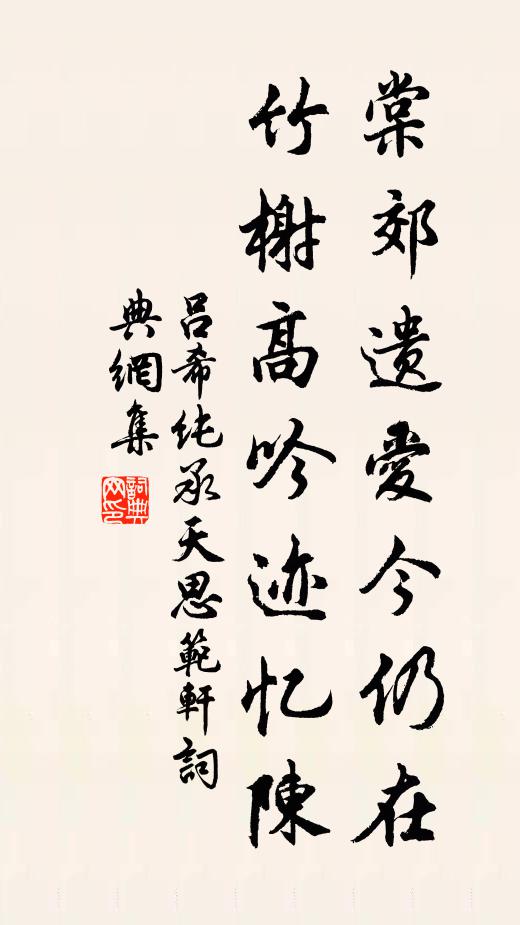 棠郊遗爱今仍在
竹榭高吟迹忆陳
吕希纯承天思範軒詞
典網集
詞典网印